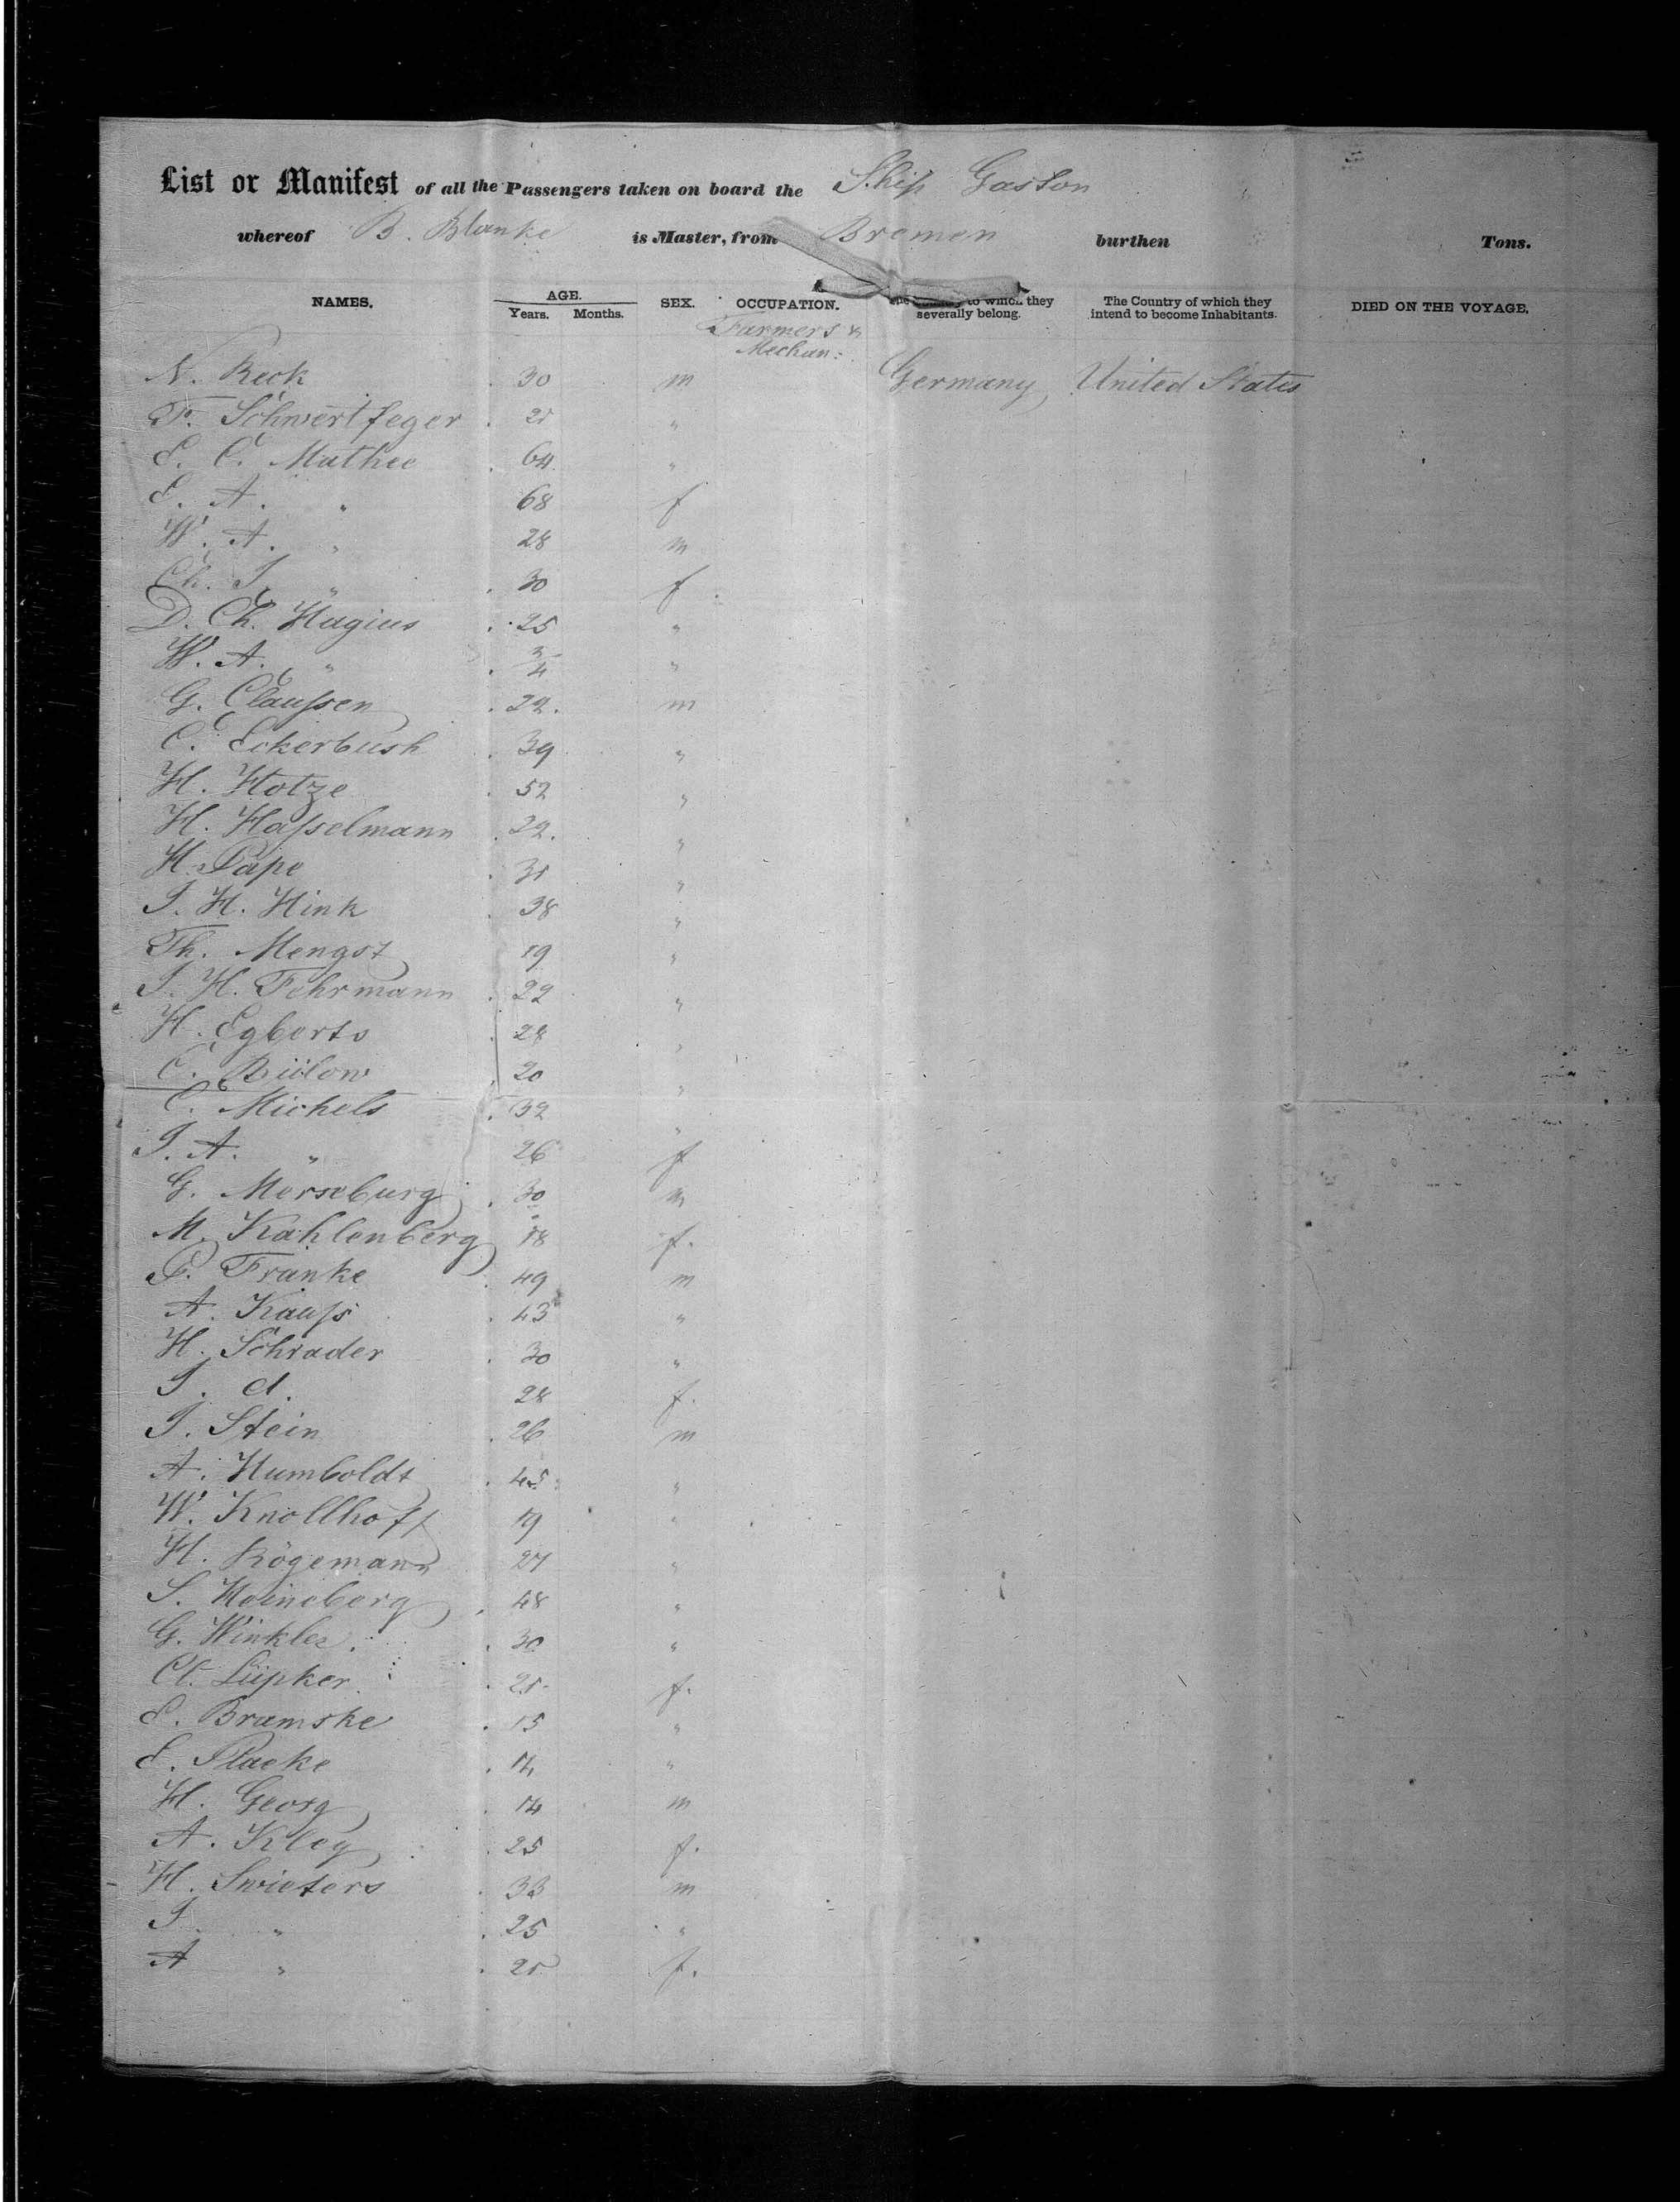 List or Manifest of all the Passengers taken on board the Ship Gaston
whereof B. Blanke is Master, from Bremen burthen Tons.
NAMES. AGE. Years. Months. SEX. OCCUPATION. to which they severally belong. The Country of which they intend to become Inhabitants. DIED ON THE VOYAGE.
Farmers &
Mechan:
N. Reck 30 m Germany, United States
F. Schwertfeger 21 "
E. C. Mathee 64 "
E. A. " 68 f
W. A. " 28 m
Ch. J. " 30 f
D. Ch. Hagius 25 "
W. A. " 3/4 "
G. Claussen 22. m
C. Eckerbush 39 "
H. Hotze 52 "
H. Hasselmann 22. "
H. Pape 31 "
J. H. Hink 38 "
Th. Mengst 19 "
J. H. Fehrmann 22 "
H. Egberts 28 "
C. Bülow 20 "
C. Michels 32 "
J. A. " 26 f
G. Merseburg 30 m
M. Kahlenberg 18 f.
P. Franke 49 m
A. Kauss 43 "
H. Schrader 30 "
J. d. 28 f.
J. Stein 26 m
A. Humboldt 45 "
W. Knollhoff 19 "
H. Rögemann 27 "
S. Heineberg 48 "
G. Winkler. 30 "
Cl. Lüpker 21 f.
E. Bramske 15 "
E. Placke 14 "
H. Georg 14 m
A. Kley 25 f.
H. Swieters 33 m
J. " 25 "
A " 21 f.